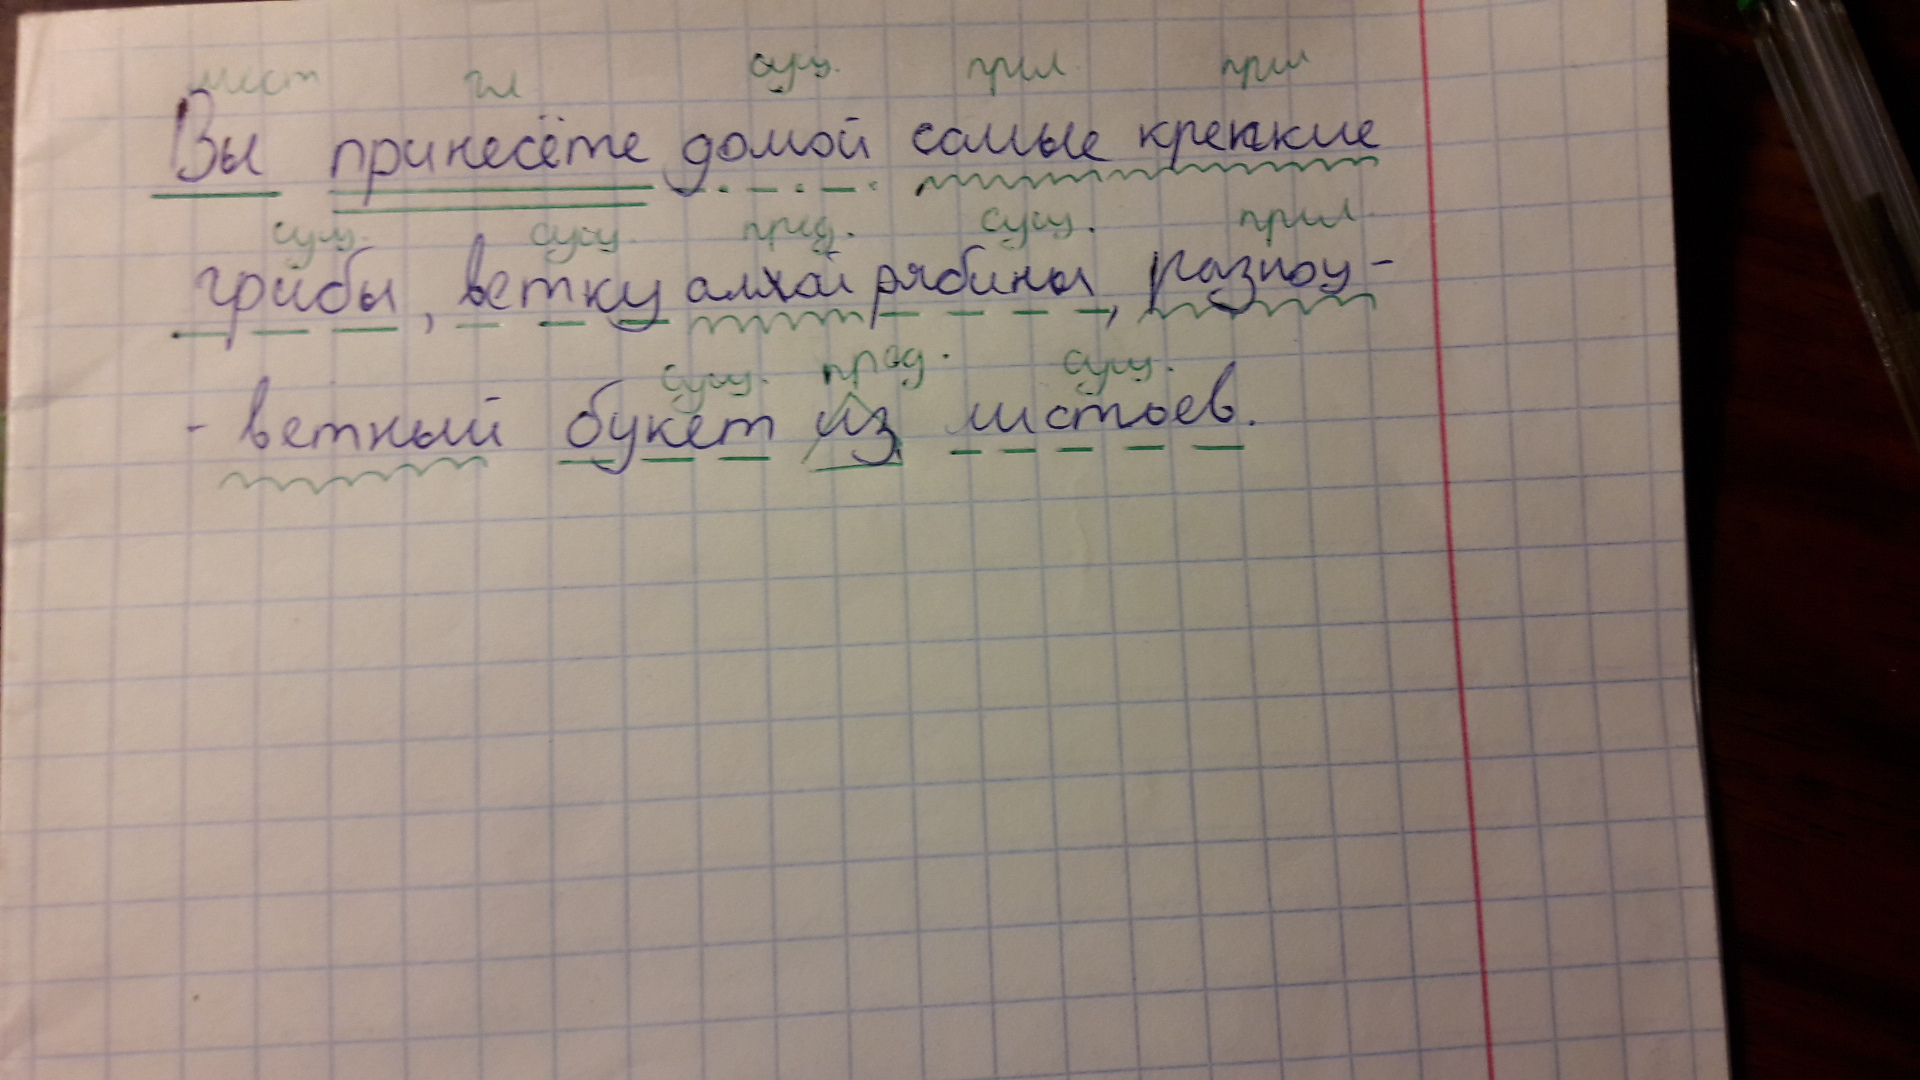 мест гл сущ. прил прил
Вы принесёте домой самые крепкие
сущ. сущ. пред. сущ. прил
грибы, ветку алой рябины, разноц-
сущ. пред. сущ.
- ветный букет из листьев.